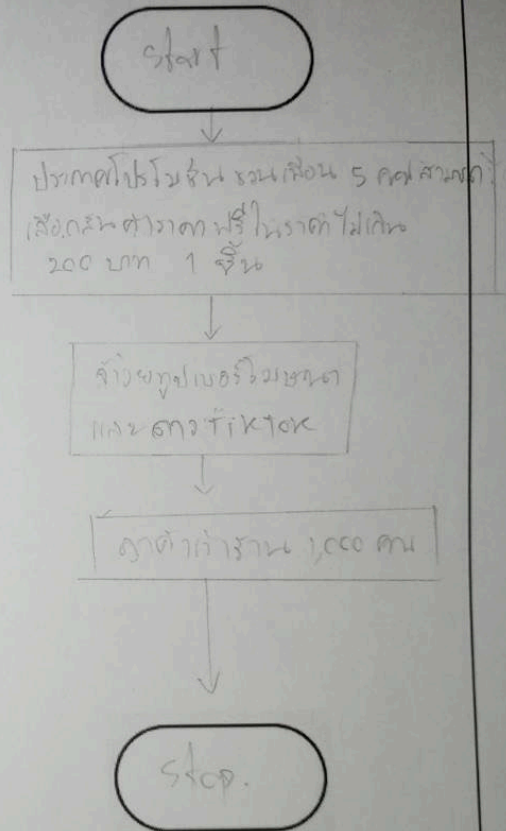 Start
ประกาศโปรโมชั่น ชวนเพื่อน 5 คน สามารถ
เลือกสินค้าราคาฟรีในราคาไม่เกิน
200 บาท 1 ชิ้น
จ้างยูทูปเบอร์โฆษณา
และดาว TikTok
ลูกค้าเข้าร้าน 1,000 คน
Stop.